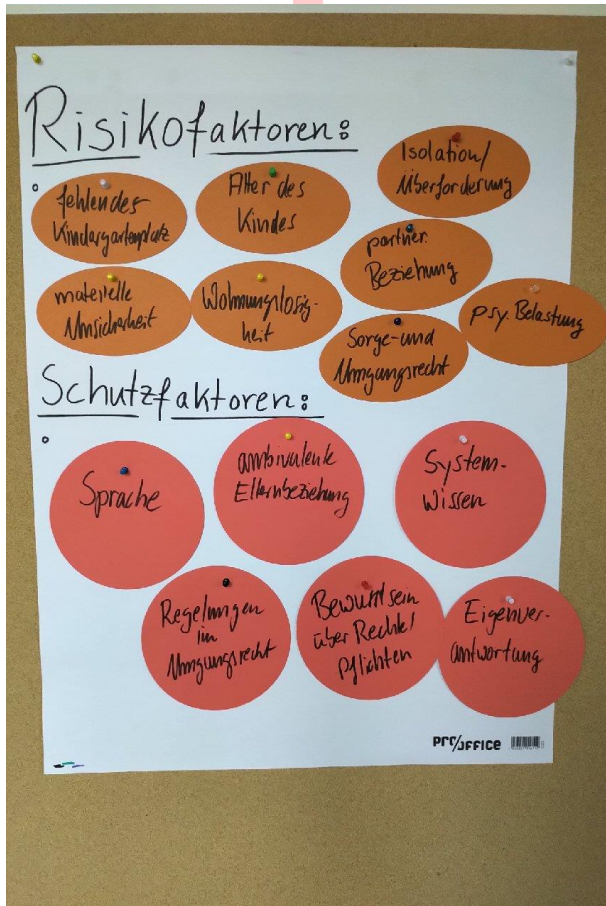 Risikofaktoren:
fehlendes
Kindergartenplatz
Alter des
Kindes
Isolation/
Überforderung
materielle
Unsicherheit
Wohnungslosig-
keit
partner.
Beziehung
Sorge- und
Umgangsrecht
psy. Belastung
Schutzfaktoren:
Sprache
ambivalente
Elternbeziehung
System-
wissen
Regelungen
im
Umgangsrecht
Bewusstsein
über Rechte/
Pflichten
Eigenver-
antwortung
PRO/OFFICE